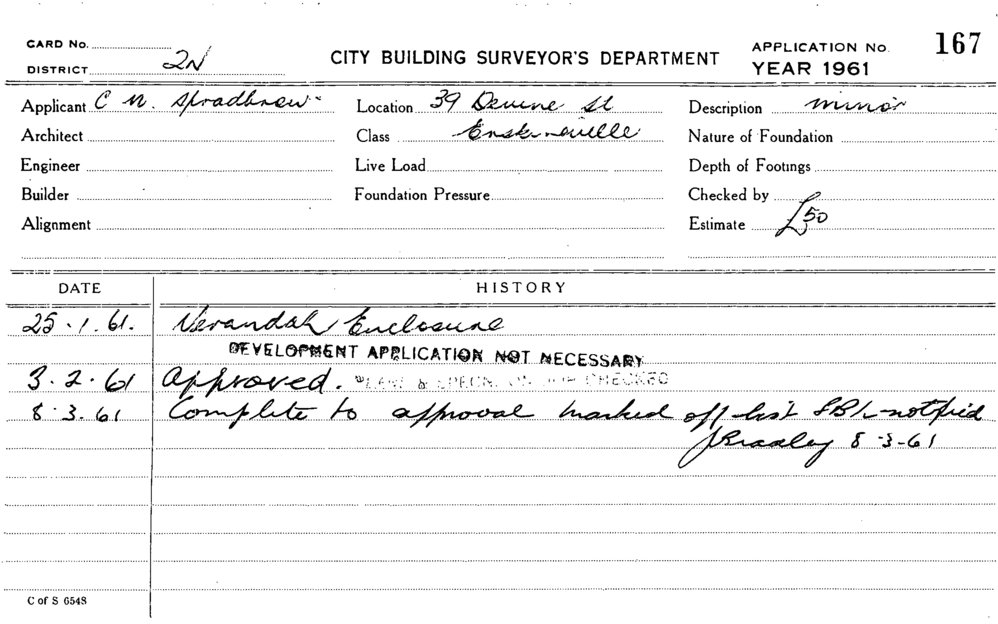 CARD No.
DISTRICT 2N
CITY BUILDING SURVEYOR'S DEPARTMENT
APPLICATION No. 167
YEAR 1961
Applicant C N. Spradbrow
Location 39 Devine St
Description minor
Architect
Class Erskineville
Nature of Foundation
Engineer
Live Load
Depth of Footings
Builder
Foundation Pressure
Checked by
Alignment
Estimate £50
DATE
HISTORY
25.1.61. Verandah Enclosure
DEVELOPMENT APPLICATION NOT NECESSARY
3.2.61 Approved. PLANS & SPECN. ON JOB CHECKED
8.3.61 Complete to approval marked off list notified
JBradley 8-3-61
C of S 654S